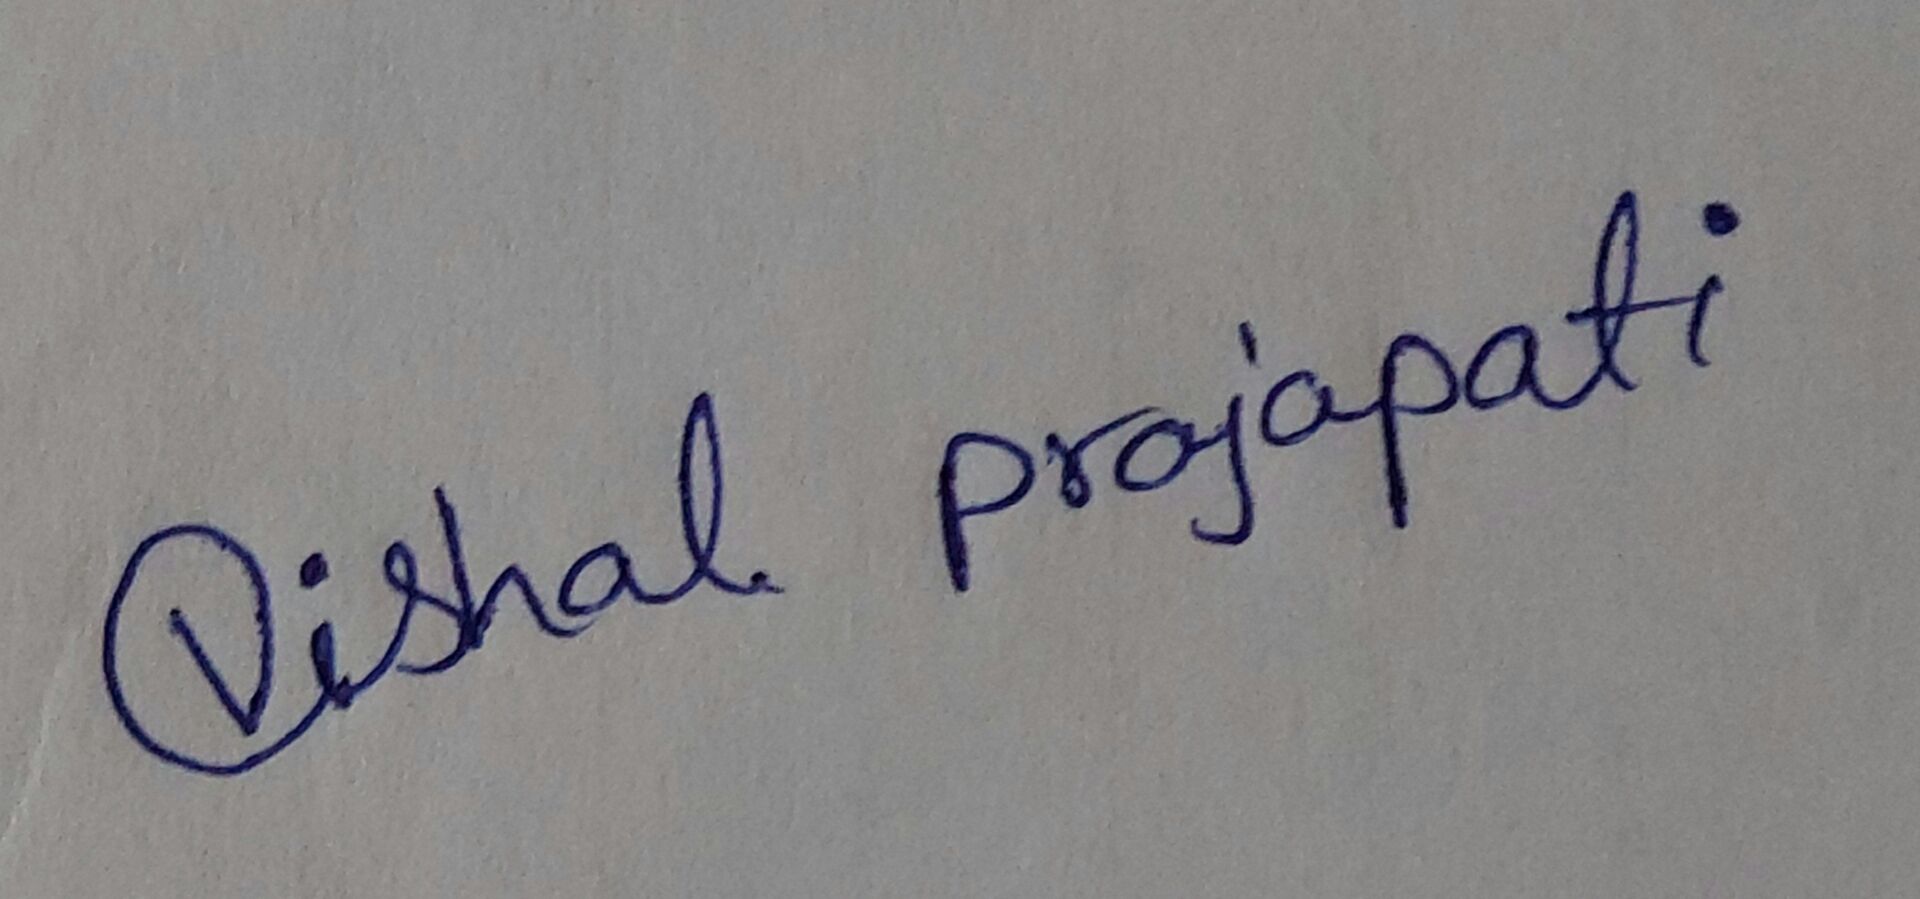 Vishal prajapati